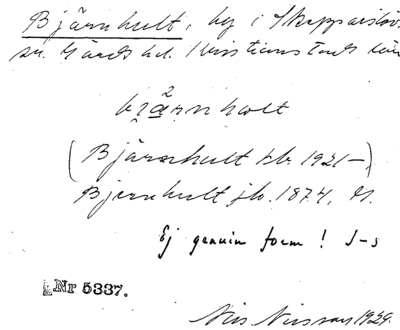 Bjärnhult, by i Skeppsslöv
sn. Gärds hd. Kristianstads län
bjärnholt
(Bjärnhult kb. 1921–)
Bjernhult jb. 1874, M.
Ej genuin form! J-s
Nr 5337.
Nils Nilsson 1929.